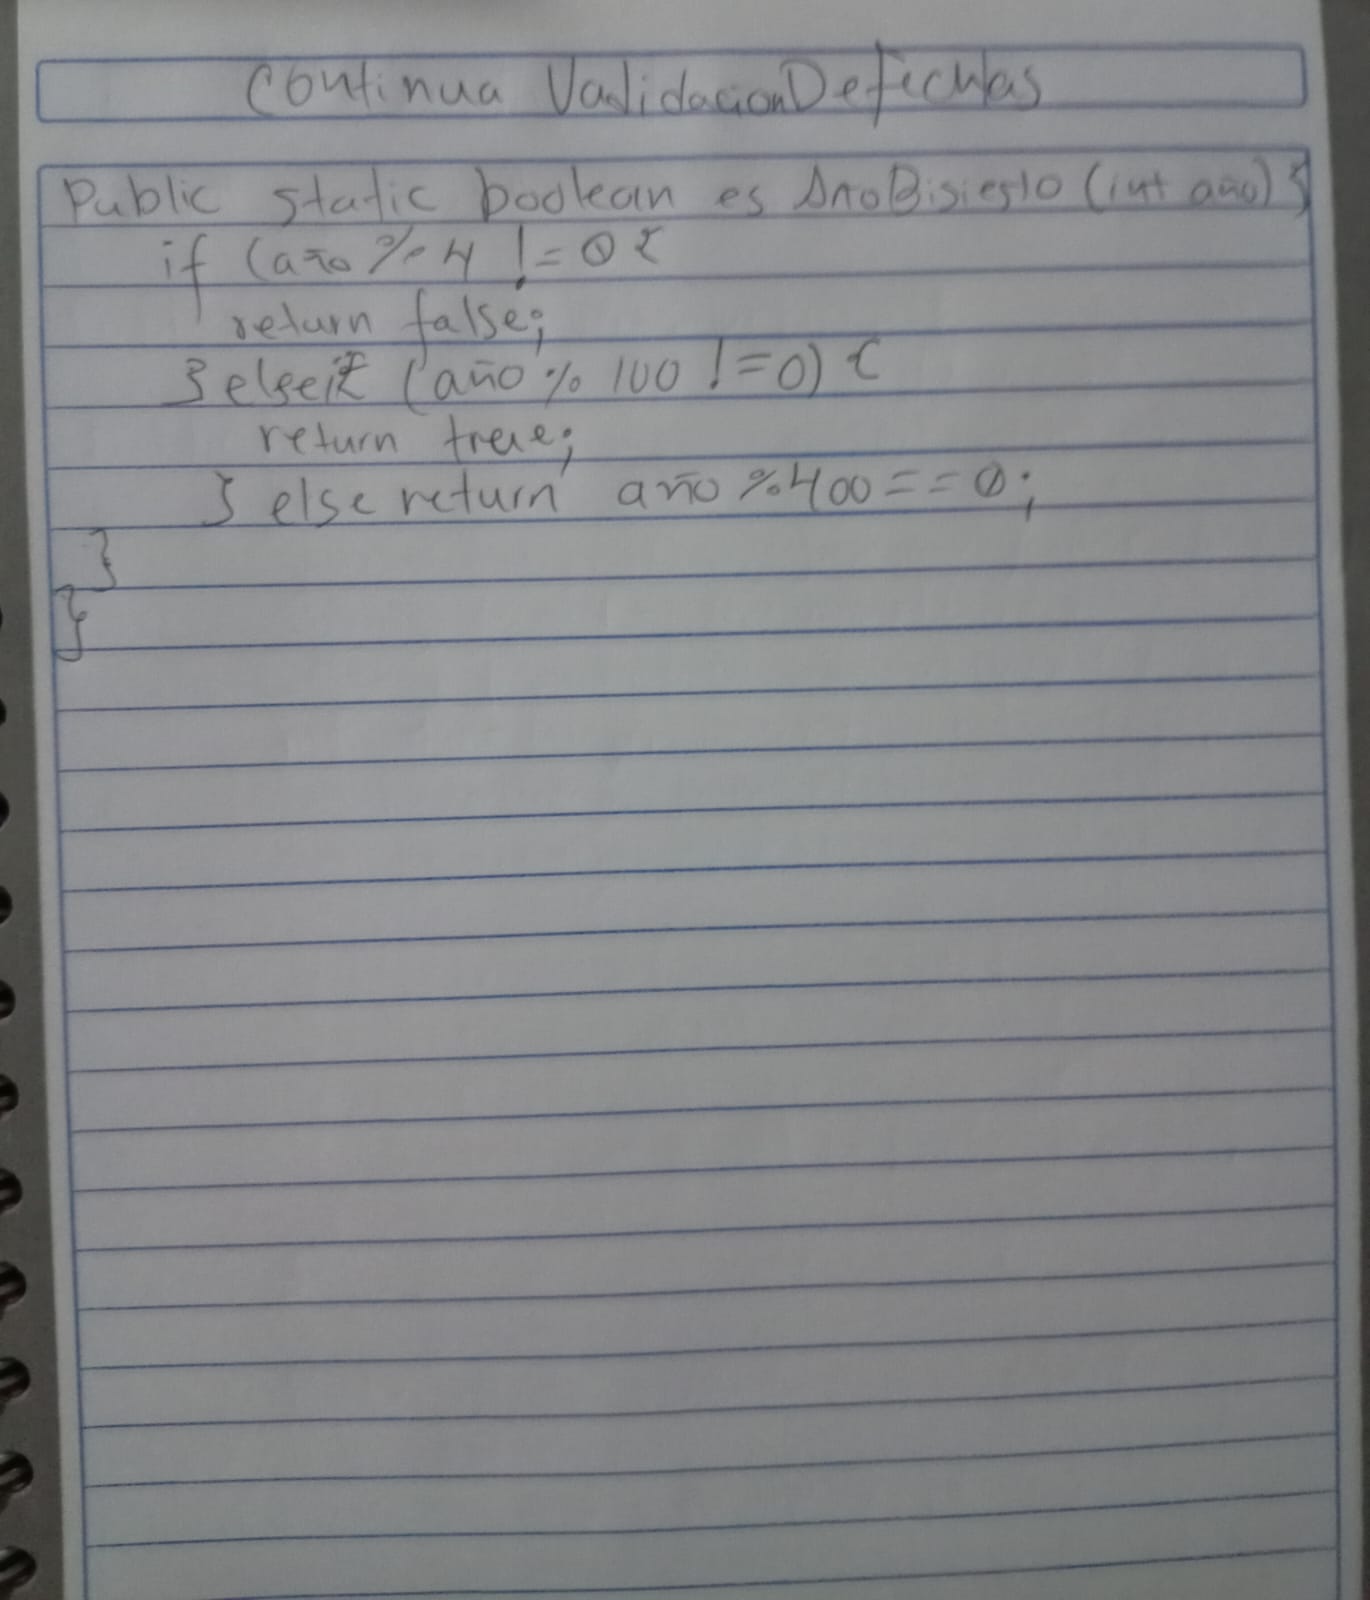 Continua ValidacionDefechas
Public static boolean es AnoBisiesto (int año) {
if (año % 4 != 0 {
return false;
} elseif (año % 100 != 0) {
return true;
} else return año % 400 == 0;
}
}